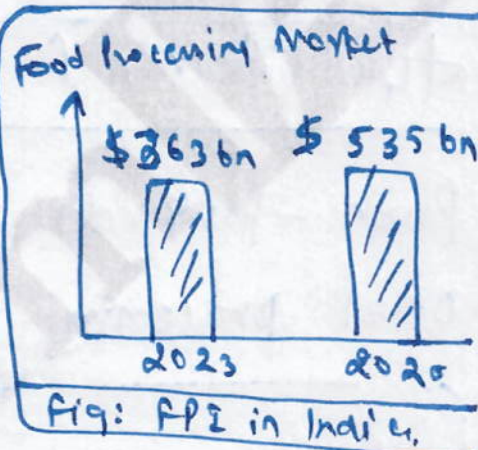 Food Processing Market
$363 bn $ 535 bn
2023 202
Fig: FPI in India.